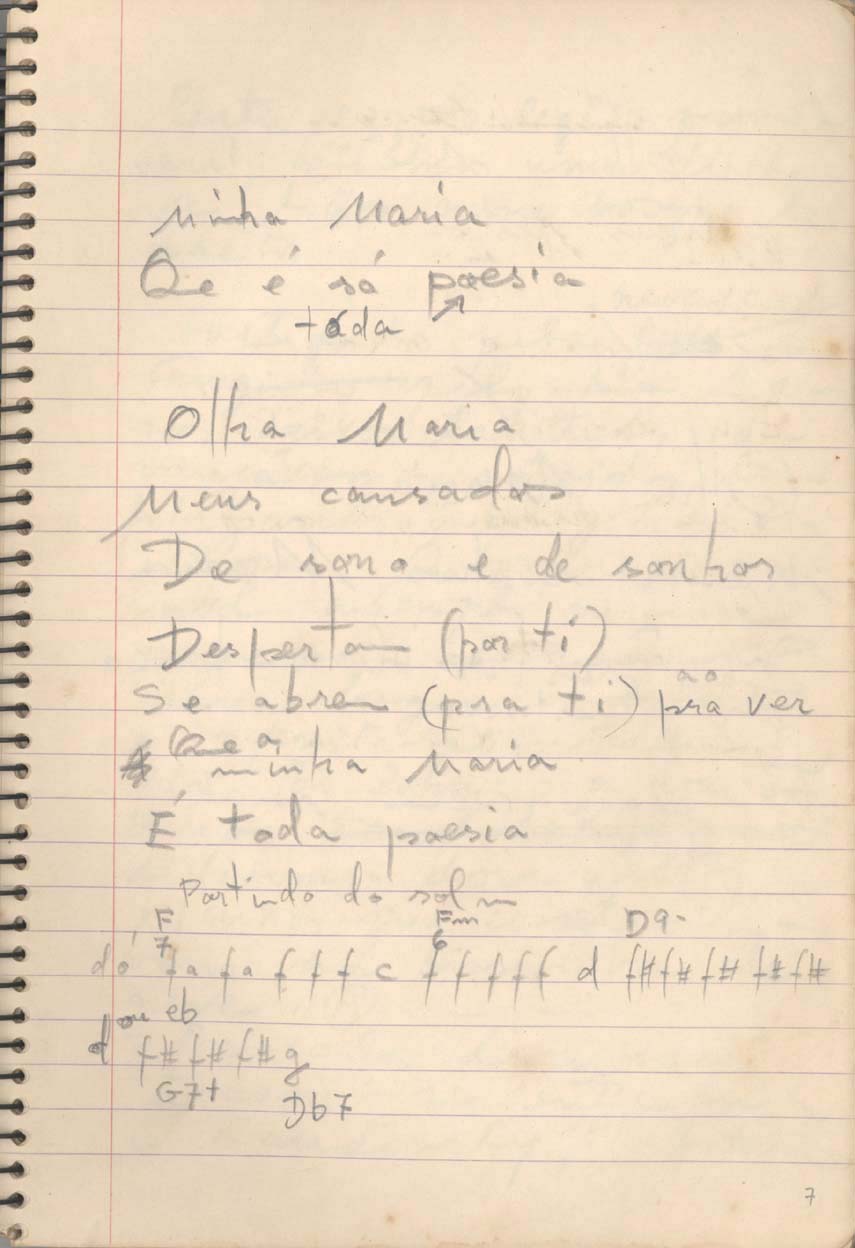 Minha Maria
Que é só poesia
toda
Olha Maria
Meus cansados
De sono e de sonhos
Despertam (por ti)
Se abrem (pra ti) pra ver
ao
Que a
minha Maria
É toda poesia
Partindo do sol m
F Fm D9-
7 6
dó fa fa f f f c f f f f f d f# f# f# f# f#
ou eb
d f# f# f# g
G7+
Db7
7